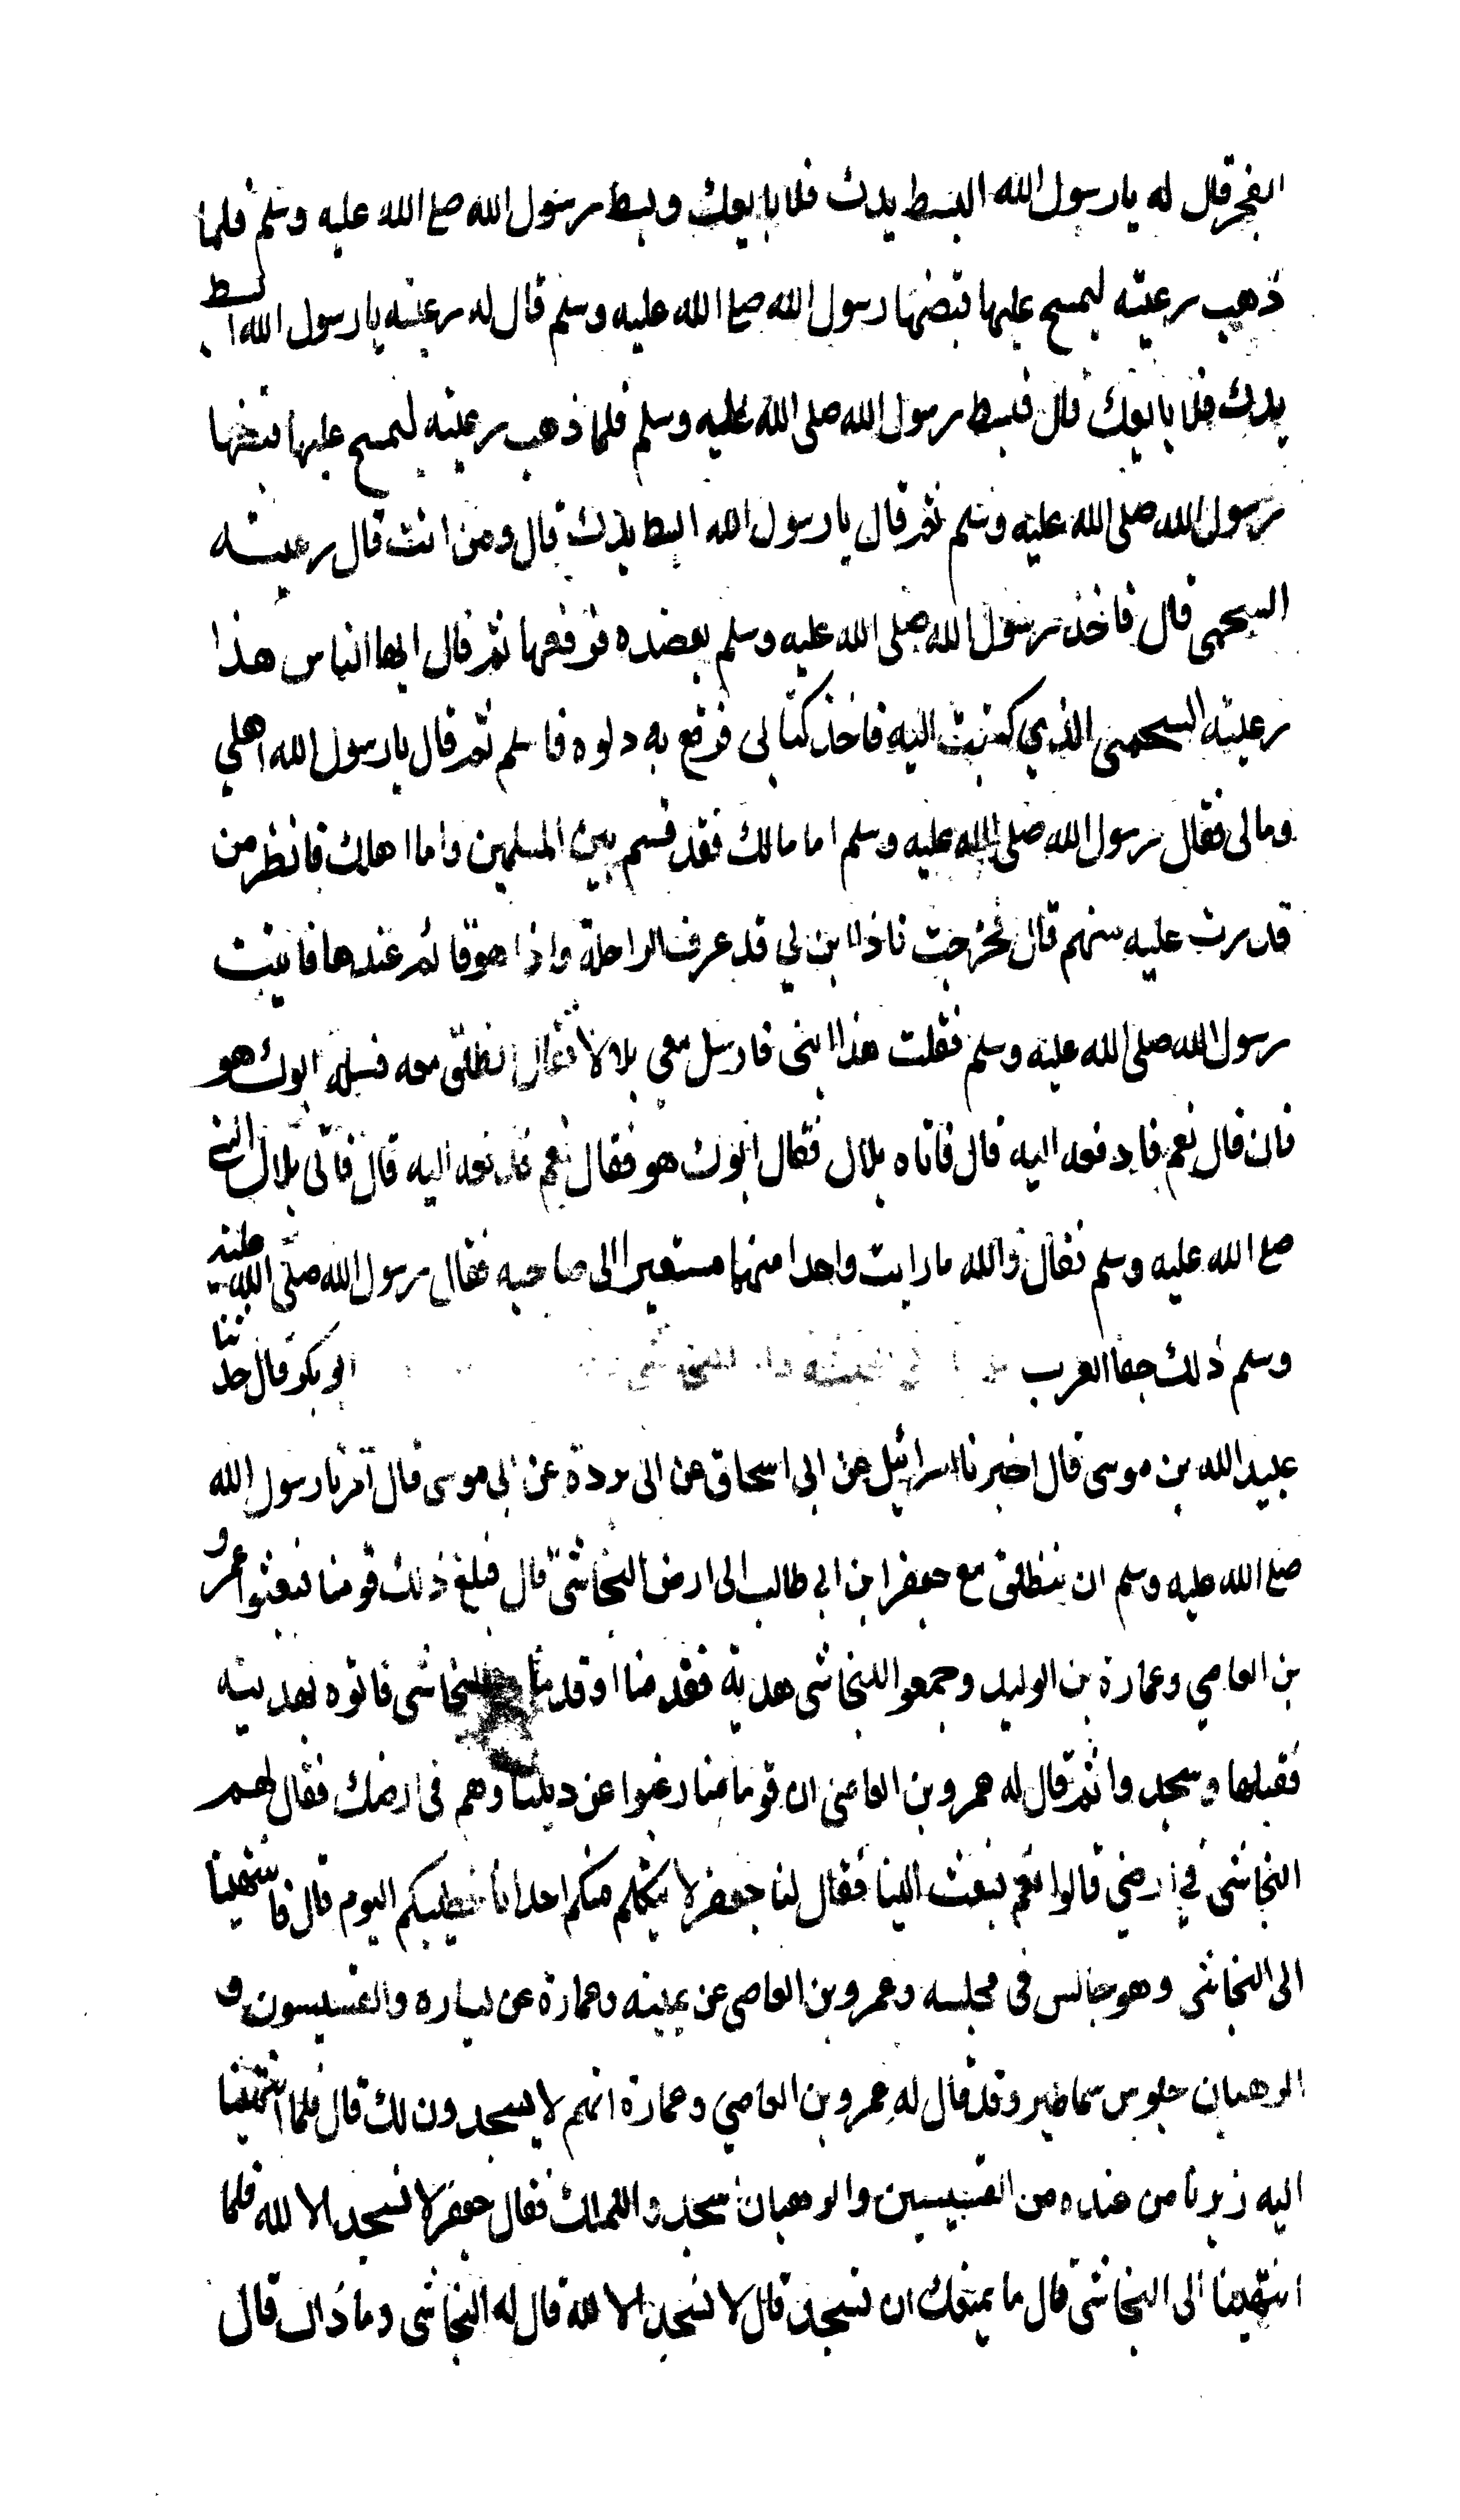 الفجر قال له يا رسول الله ابسط يدك فلابايعك وبسط رسول الله صلع الله عليه وسلم فلما
ذهب رعيته ليمسح عليها قبضها رسول الله صلع الله عليه وسلم قال له رعيته يا رسول الله ابسط
يدك فلابايعك قال فبسط رسول الله صلى الله عليه وسلم فلما ذهب رعيته ليمسح عليها قبضها
رسول الله صلى الله عليه وسلم ثم قال يا رسول الله ابسط يدك قال ومن انت قال رعيته
السحيمى قال فاخذ رسول الله صلى الله عليه وسلم بعضده فرفعها ثم قال ايها الناس هذا
رعيته السحيمى الذي كتبت اليه فاخذ كتابى فرقع به دلوه فاسلم ثم قال يا رسول الله اهلي
ومالى فقال رسول الله صلى الله عليه وسلم اما مالك فقد قسم بين المسلمين واما اهلك فانظر من
قدرت عليه منهم قال فخرجت فاذا ابن لي قد عرف الراحلة واذا هو قائم عندها فاتيت
رسول الله صلى الله عليه وسلم فقلت هذا ابنى فارسل معي بلالا فقال انطلق معه فسله ابوك هو
فان قال نعم فادفعه اليه قال فاتاه بلال فقال ابوك هو فقال نعم فدفعه اليه قال فاتى بلال النبي
صلع الله عليه وسلم فقال والله ما رايت واحدا منهما مستعبرا الى صاحبه فقال رسول الله صلى الله عليه
وسلم ذلك جفا العرب ابو بكر قال حدثنا
عبيد الله بن موسى قال اخبرنا اسرائيل عن ابى اسحاق عن ابى بردة عن ابى موسى قال امرنا رسول الله
صلع الله عليه وسلم ان ننطلق مع جعفر ابن ابى طالب الى ارض النجاشى قال فبلغ ذلك قومنا فبعثوا عمرو
بن العاصي وعمارة بن الوليد وجمعوا للنجاشى هدية فقدمنا وقدما النجاشى فاتوه بهديته
فقبلها وسجدوا ثم قال له عمرو بن العاصى ان قوما منا رغبوا عن ديننا وهم فى ارضك فقال لهم
النجاشى في ارضي قالوا نعم فبعث الينا فقال لنا جعفر لا يتكلم منكم احد انا خطيبكم اليوم قال فانتهينا
الى النجاشى وهو جالس فى مجلسه وعمرو بن العاصي عن يمينه وعمارة عن يساره والقسيسون و
الرهبان جلوس سماطين وقد قال له عمرو بن العاصي وعمارة انهم لا يسجدون لك قال فلما انتهينا
اليه زبرنا من عنده من القسيسين والرهبان اسجدوا للملك فقال جعفر لا نسجد الا لله فلما
انتهينا الى النجاشى قال ما يمنعك ان تسجد قال لا نسجد الا لله قال له النجاشى وما ذاك قال